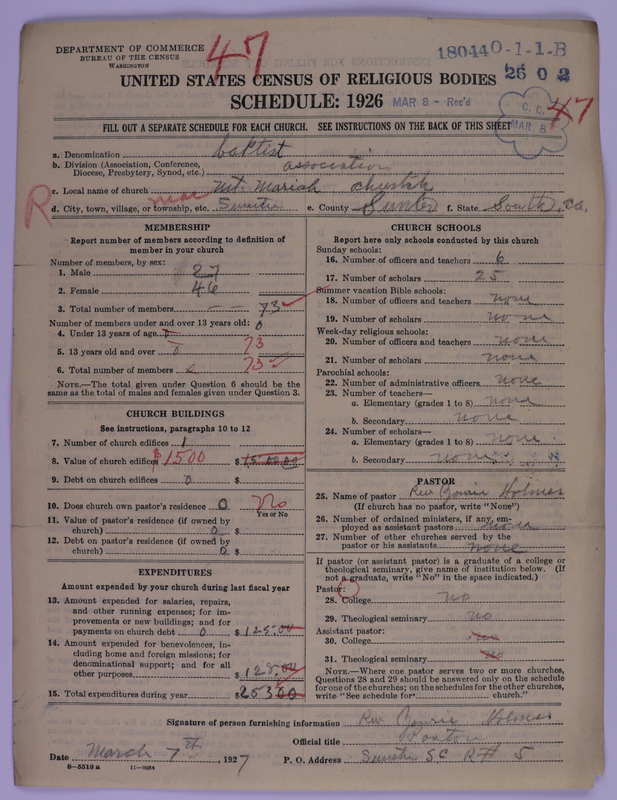 DEPARTMENT OF COMMERCE
BUREAU OF THE CENSUS
WASHINGTON
47
180440-1-1-B
UNITED STATES CENSUS OF RELIGIOUS BODIES
2602
SCHEDULE: 1926
MAR 8 - Rec'd
C. C. MAR 8
47
FILL OUT A SEPARATE SCHEDULE FOR EACH CHURCH. SEE INSTRUCTIONS ON THE BACK OF THIS SHEET
a. Denomination baptist
b. Division (Association, Conference, Diocese, Presbytery, Synod, etc.) association
c. Local name of church Mt. Mariah
R
d. City, town, village, or township, etc. near Sumter e. County Sumter f. State South Ca.
MEMBERSHIP
Report number of members according to definition of member in your church
Number of members, by sex:
1. Male 27
2. Female 46
3. Total number of members 73
Number of members under and over 13 years old: 0
4. Under 13 years of age
5. 13 years old and over 0 73
6. Total number of members 73
NOTE.—The total given under Question 6 should be the same as the total of males and females given under Question 3.
CHURCH BUILDINGS
See instructions, paragraphs 10 to 12
7. Number of church edifices 1
8. Value of church edifices $1500 $1500.00
9. Debt on church edifices 0 $
10. Does church own pastor's residence 0 No
Yes or No
11. Value of pastor's residence (if owned by church) 0 $
12. Debt on pastor's residence (if owned by church) 0 $
EXPENDITURES
Amount expended by your church during last fiscal year
13. Amount expended for salaries, repairs, and other running expenses; for improvements or new buildings; and for payments on church debt 0 $125.00
14. Amount expended for benevolences, including home and foreign missions; for denominational support; and for all other purposes $128.00
15. Total expenditures during year $253.00
CHURCH SCHOOLS
Report here only schools conducted by this church
Sunday schools:
16. Number of officers and teachers 6
17. Number of scholars 25
Summer vacation Bible schools:
18. Number of officers and teachers none
19. Number of scholars none
Week-day religious schools:
20. Number of officers and teachers none
21. Number of scholars none
Parochial schools:
22. Number of administrative officers none
23. Number of teachers—
a. Elementary (grades 1 to 8) none
b. Secondary none
24. Number of scholars—
a. Elementary (grades 1 to 8) none
b. Secondary none
PASTOR
25. Name of pastor Rev Holmes
(If church has no pastor, write "None")
26. Number of ordained ministers, if any, employed as assistant pastors none
27. Number of other churches served by the pastor or his assistants none
If pastor (or assistant pastor) is a graduate of a college or theological seminary, give name of institution below. (If not a graduate, write "No" in the space indicated.)
Pastor:
28. College no
29. Theological seminary no
Assistant pastor:
30. College no
31. Theological seminary no
NOTE.—Where one pastor serves two or more churches, Questions 28 and 29 should be answered only on the schedule for one of the churches; on the schedules for the other churches, write "See schedule for church."
Signature of person furnishing information Rev Holmes
Official title Pastor
Date March 7th, 1927 P. O. Address Sumter SC R# 5
8—5518 a 11—9084